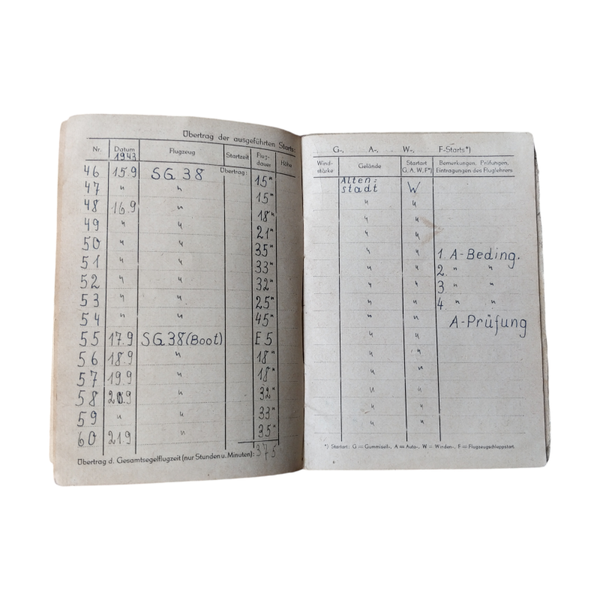 Übertrag der ausgeführten Starts:
Nr. Datum Flugzeug Startzeit Flugdauer Höhe
1943 Übertrag:
46 15.9 SG 38 15"
47 " " 15"
48 16.9 " 18"
49 " " 21"
50 " " 35"
51 " " 33"
52 " " 32"
53 " " 25"
54 " " 45"
55 17.9 SG 38 (Boot) E 5
56 18.9 " 18"
57 19.9 " 18"
58 20.9 " 32"
59 " " 33"
60 21.9 " 35"
Übertrag d. Gesamtsegelflugzeit (nur Stunden u. Minuten): 375
G-, A-, W-, F-Starts*)
Windstärke Gelände Startart G, A, W, F*) Bemerkungen, Prüfungen, Eintragungen des Fluglehrers
Alten:
stadt W
" "
" "
" "
" " 1. A-Beding.
" " 2 " "
" " 3 " "
" " 4 " "
" " A-Prüfung
" "
" "
" "
" "
" "
" "
*) Startart: G = Gummiseil-, A = Auto-, W = Winden-, F = Flugzeugschleppstart.